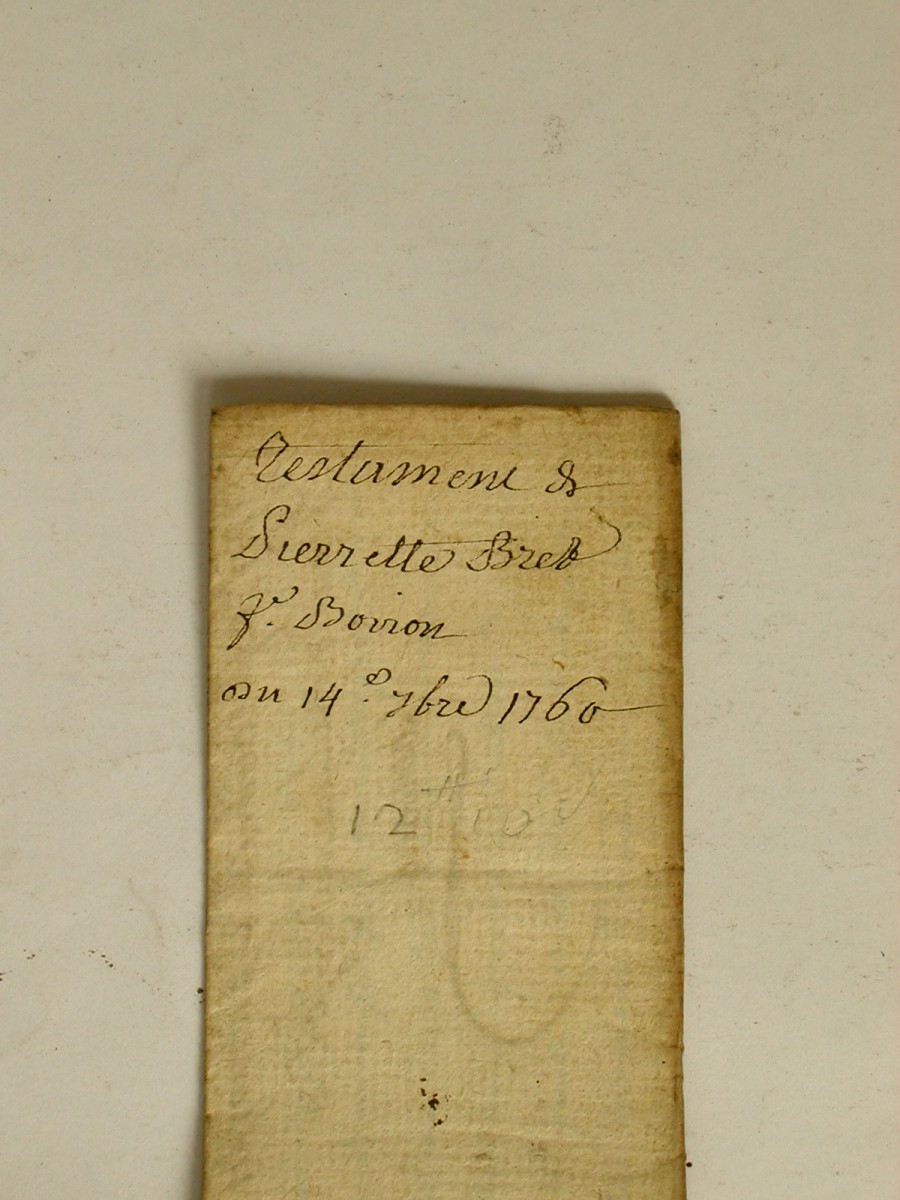 Testament de
Pierrette Bret
fe. Bovion
du 14e. 7bre 1760
12tt 10s